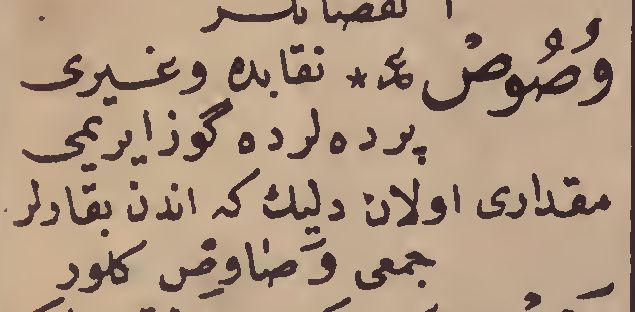 وُصُوصْ * نقابده وغیری
پرده لرده گوز ایریمی
مقداری اولان دلیك كه اندن بقادلر
جمعی وَصَاوِصْ كلور